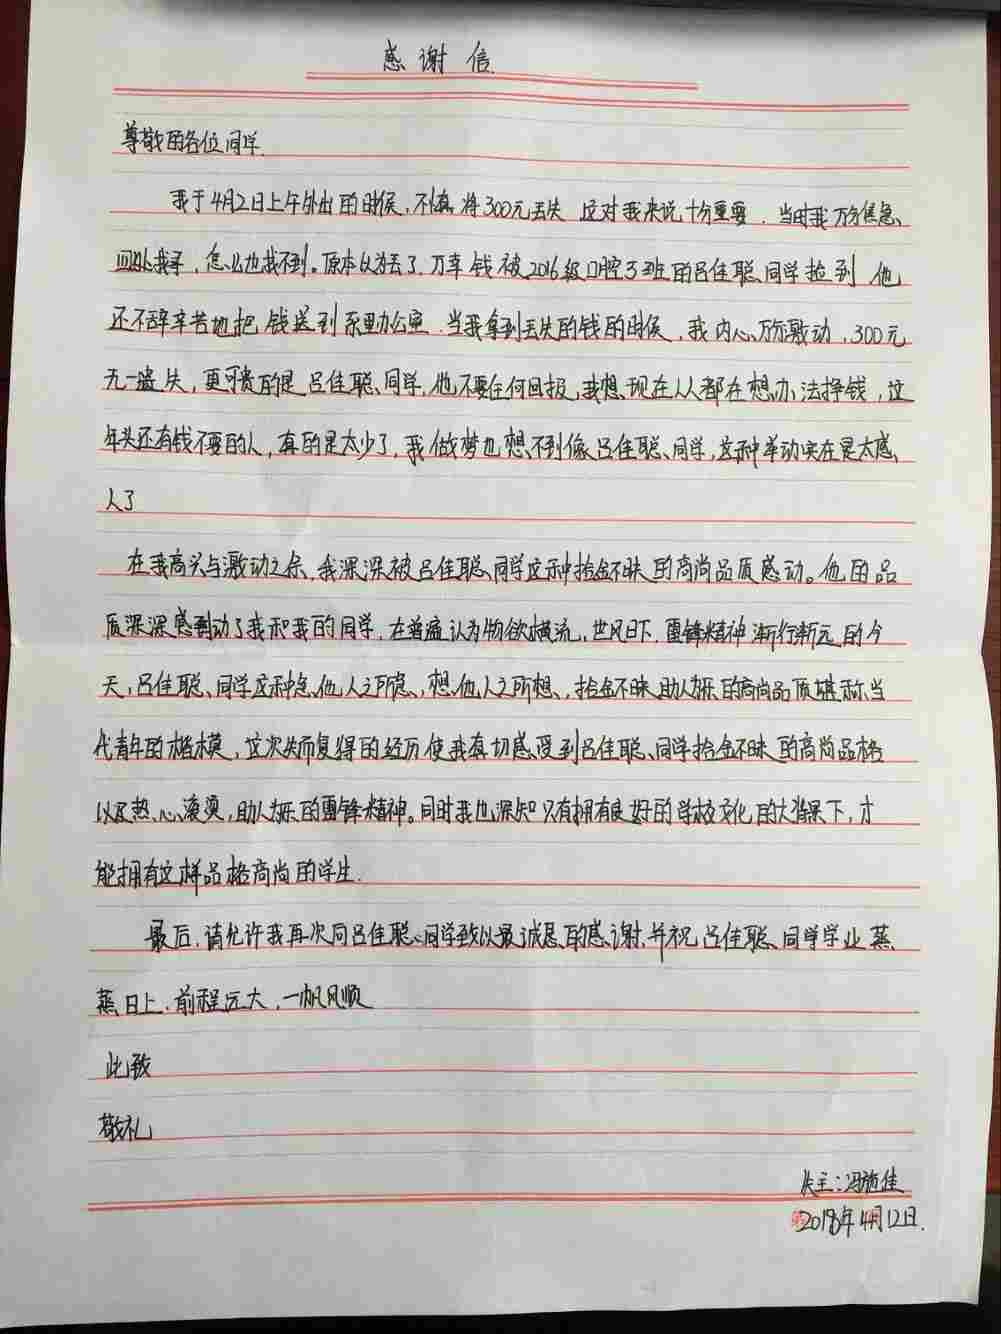 感谢信
尊敬的各位同学
我于4月2日上午外出的时候,不慎将300元丢失 这对我来说十分重要.当时我万分焦急、
回处找寻,怎么也找不到。原本以为丢了.万幸钱被2016级口腔3班的吕佳聪同学捡到 他
还不辞辛苦地把钱送到系里办公室.当我拿到丢失的钱的时候,我内心万分激动,300元
无一遗失,更可贵的是吕佳聪同学,他不要任何回报,我想现在人人都在想办法挣钱,这
年头还有钱不要的人,真的是太少了,我做梦也想不到像吕佳聪同学,这种举动实在是太感
人了
在我高兴与激动之余、我深深被吕佳聪同学这种拾金不昧的高尚品质感动。他的品
质深深感动了我和我的同学,在普遍认为物欲横流,世风日下.雷锋精神渐行渐远的今
天,吕佳聪同学这种急他人之所急,想他人之所想,拾金不昧助人为乐的高尚品质堪称当
代青年的楷模,这次失而复得的经历使我真切感受到吕佳聪同学拾金不昧的高尚品格
以及热心滚烫,助人为乐的雷锋精神。同时我也深知只有拥有良好的学校文化的大背景下,才
能拥有这样品格高尚的学生.
最后,请允许我再次向吕佳聪同学致以最诚恳的感谢,并祝吕佳聪同学学业蒸
蒸日上.前程远大,一帆风顺
此致
敬礼
失主:冯施佳
2018年4月12日.